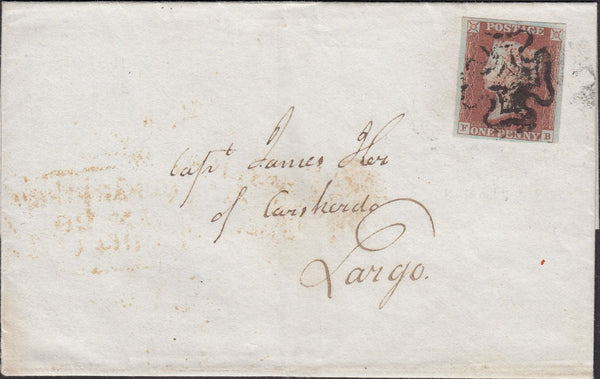 POSTAGE
F ONE PENNY B
Capt James Ker
of Carskerdo
Largo.